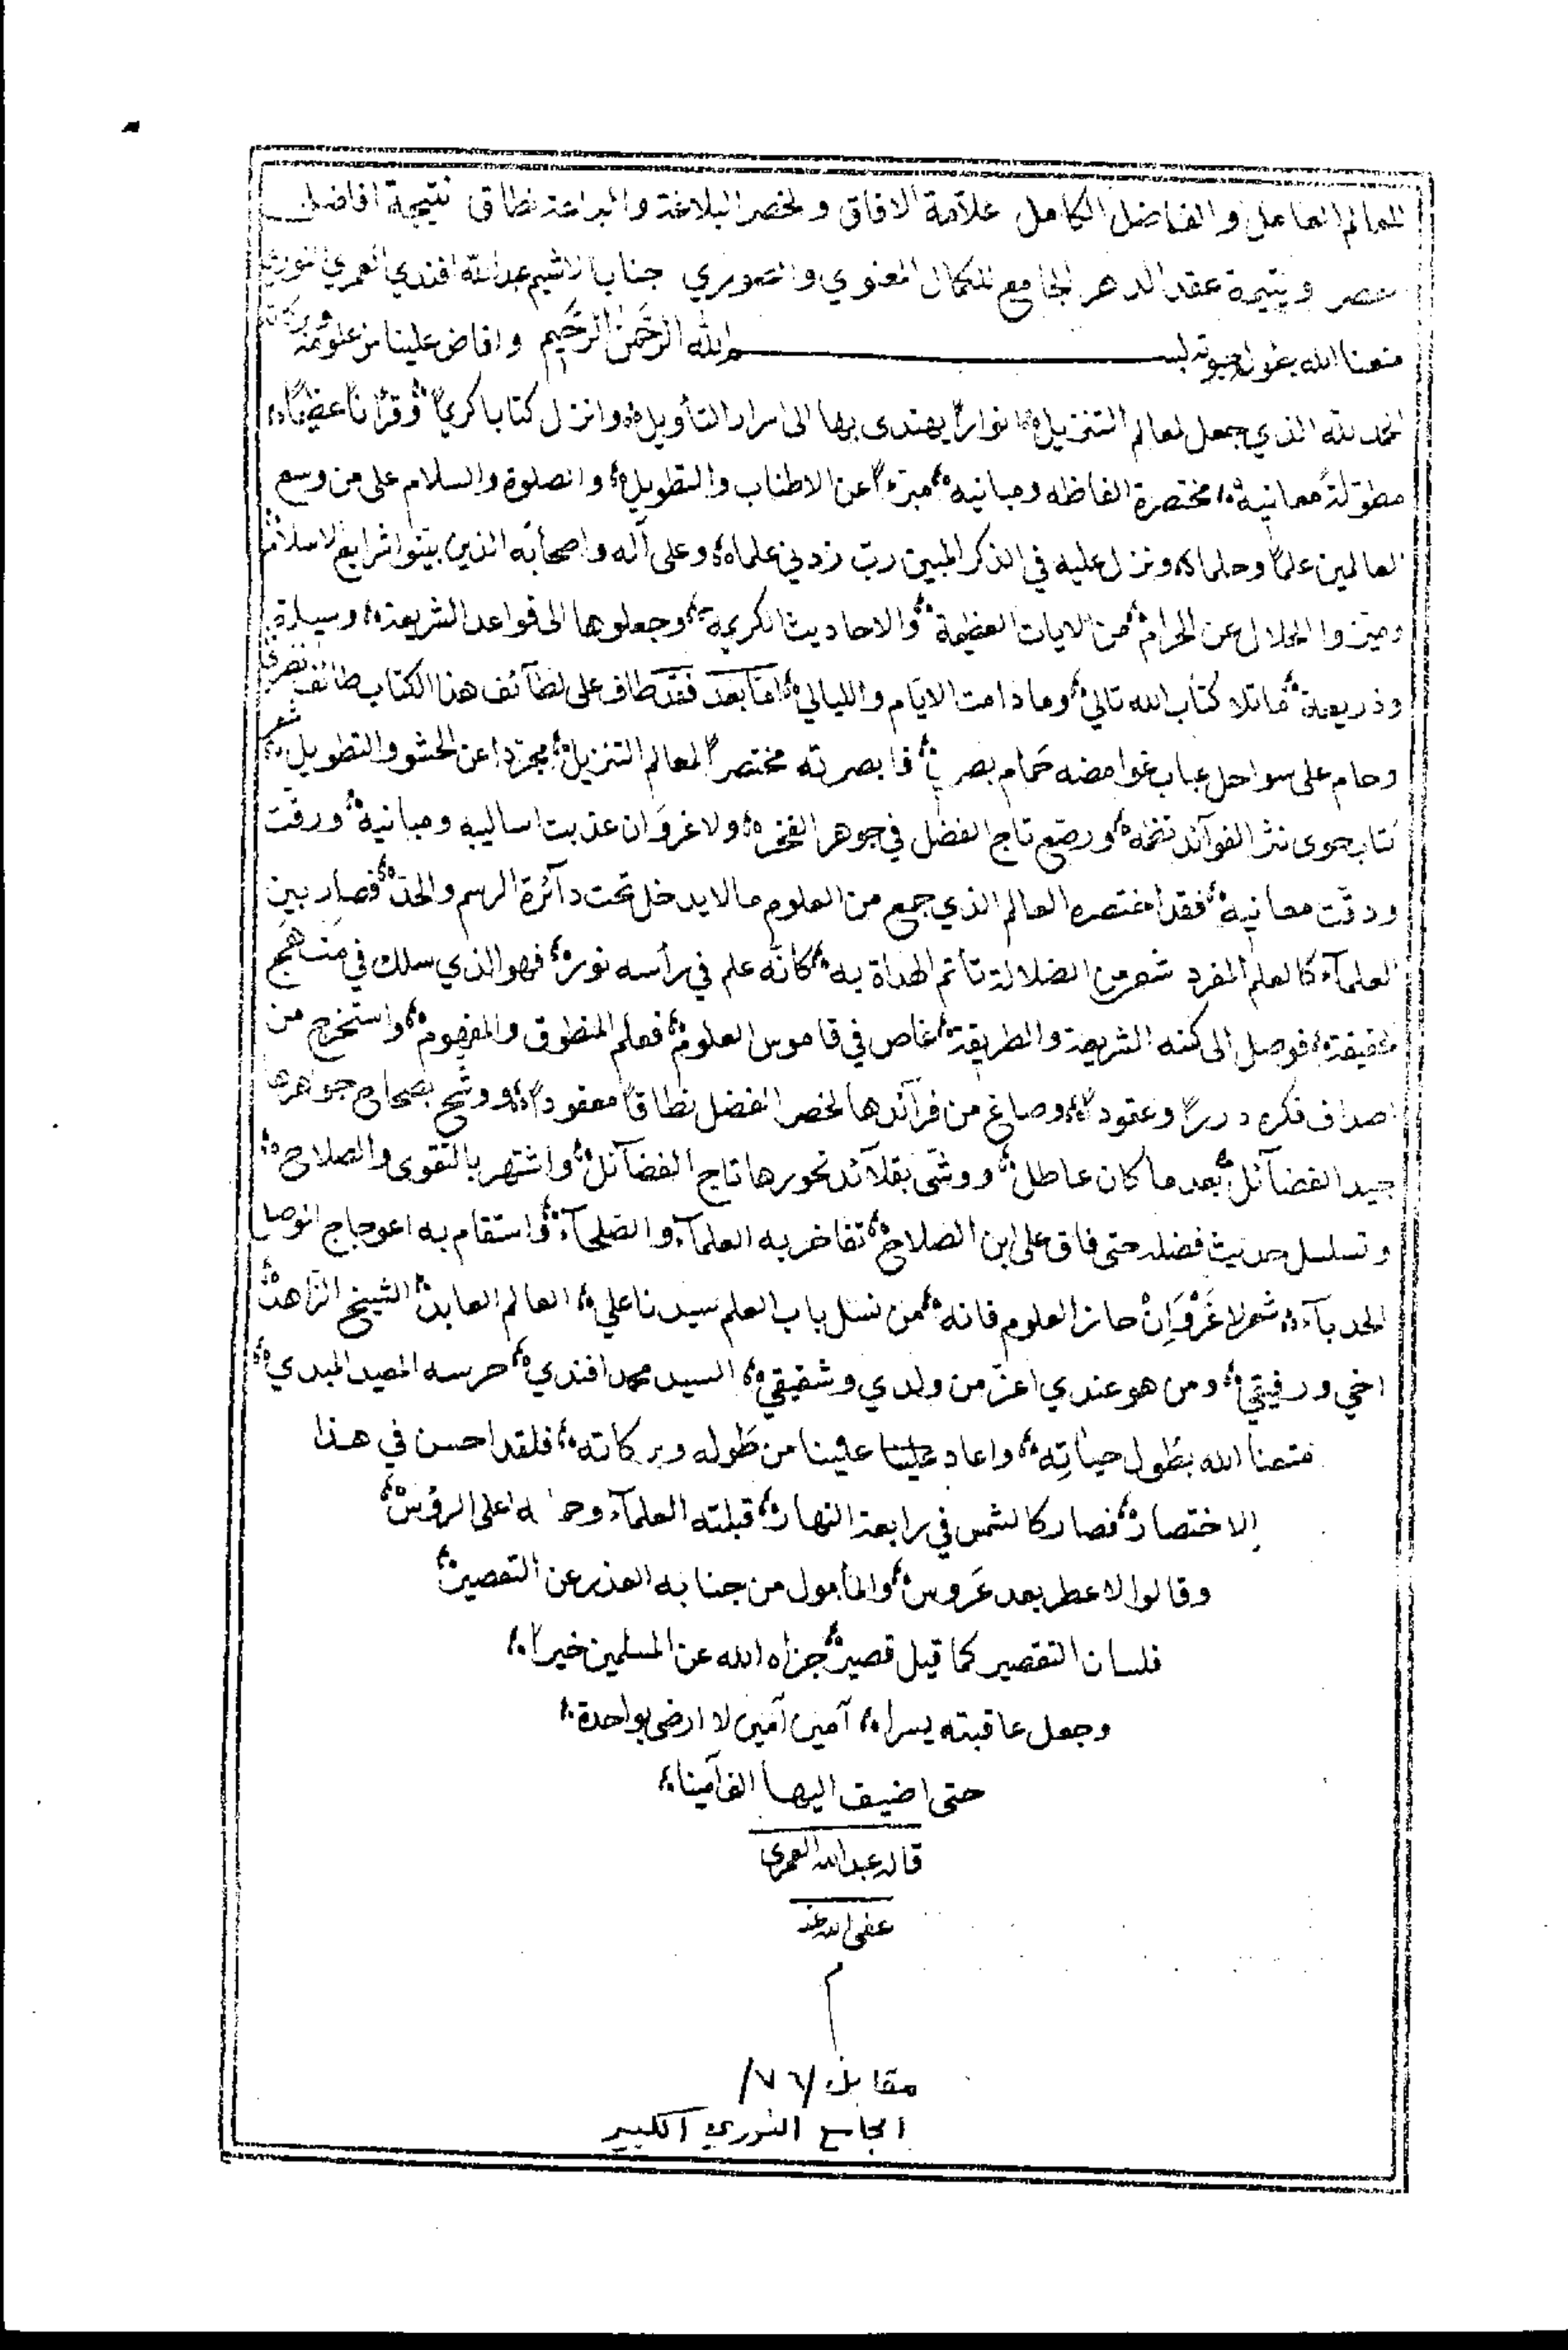 العالم العامل والفاضل الكامل علامة الافاق ولخصر البلاغة والبراعة نطاق نتيجة افاضل
عصر ويتيمة عقد الدهر الجامع للكمال المعنوي والصوري جناب عبد الله افندي العمري
متعنا الله بطول حيوته بسم الله الرَّحمن الرَّحيم وافاض علينا من علومه وبركاته
الحمد لله الذي جعل لمعالم التنزيل انواراً يهتدى بها الى اسرار التأويل وانزل كتابا كريماً وقرأناً عظيماً
مطوّلةً معانيه مختصرة الفاظه ومبانيه مبرّءاً عن الاطناب والتطويل والصلوة والسلام على من وسع
العالمين علماً وحلما ونزل عليه في الذكر المبين ربّ زدني علما وعلى آله واصحابه الذين بيّنوا شرايع الاسلام
وميّزوا الحلال عن الحرام من الايات العظيمة والاحاديث الكريمة وجعلوها الى قواعد الشريعة وسيلة
وذريعة ماتلا كتاب الله تالي وما دامت الايّام والليالي امّا بعد فقد طاف على لطآئف هذا الكتاب طائف نظري
وحام على سواحل عباب غوامضه حَمام بصري فابصرته مختصراً لمعالم التنزيل مجرّدا عن الحشو والتطويل شعر
كتاب حوى نثر الفوآئد نظمه ورصّع تاج الفضل في جوهر الفخر ولا غروَ ان عذبت اساليبه ومبانيه ورقّت
ودقّت معانيه فقد اختصره العالم الذي جمع من العلوم مالا يدخل تحت دآئرة الرسم والحد فصار بين
العلمآء كالعلم المفرد شعر من الضلالة تأتم الهداة به كانّه علم في رأسه نور فهو الذي سلك في مَنهَج
الحقيقة فوصل الى كنه الشريعة والطريقة غاص في قاموس العلوم فعلم المنطوق والمفهوم واستخرج من
اصداف فكره درراً وعقوداً وصاغ من فرآئدها لخصر الفضل نطاقاً معقوداً ووشّح بصحاح جواهرها
جيد الفضآئل بعد ما كان عاطل ووشّى بقلآئد نحورها تاج الفضآئل واشتهر بالتقوى والصلاح
وتسلسل حديث فضله حتى فاق على ابن الصلاح تفاخر به العلمآء والصّلحآء واستقام به اعوجاج الموصل
الحدبآء شعر لا غَرْوَ اِنْ حاز العلوم فانه من نسل باب العلم سيدنا علي العالم العابد الشيخ الزاهد
اخي ورفيقي ومن هو عندي اعزّ من ولدي وشقيقي السيد محمد افندي حرسه المعيد المبدي
متعنا الله بطول حياتِه واعاد علينا علينا من طَوله وبركاته فلقد احسن في هذا
الاختصار فصار كالشمس في رابعة النهار قبلته العلمآء على الرؤس
وقالوا لا عطر بعد عَروس والمأمول من جنابه العذر عن التقصير
فلسان التقصير كما قيل قصير جزاه الله عن المسلمين خيرا
وجعل عاقبته يسرا آمين آمين لا ارضى بواحدة
حتى اضيف اليها الف آمينا
قاله عبد الله العمري
عفى الله عنه
م
مقابل ٧٦/
الجامع النوري الكبير